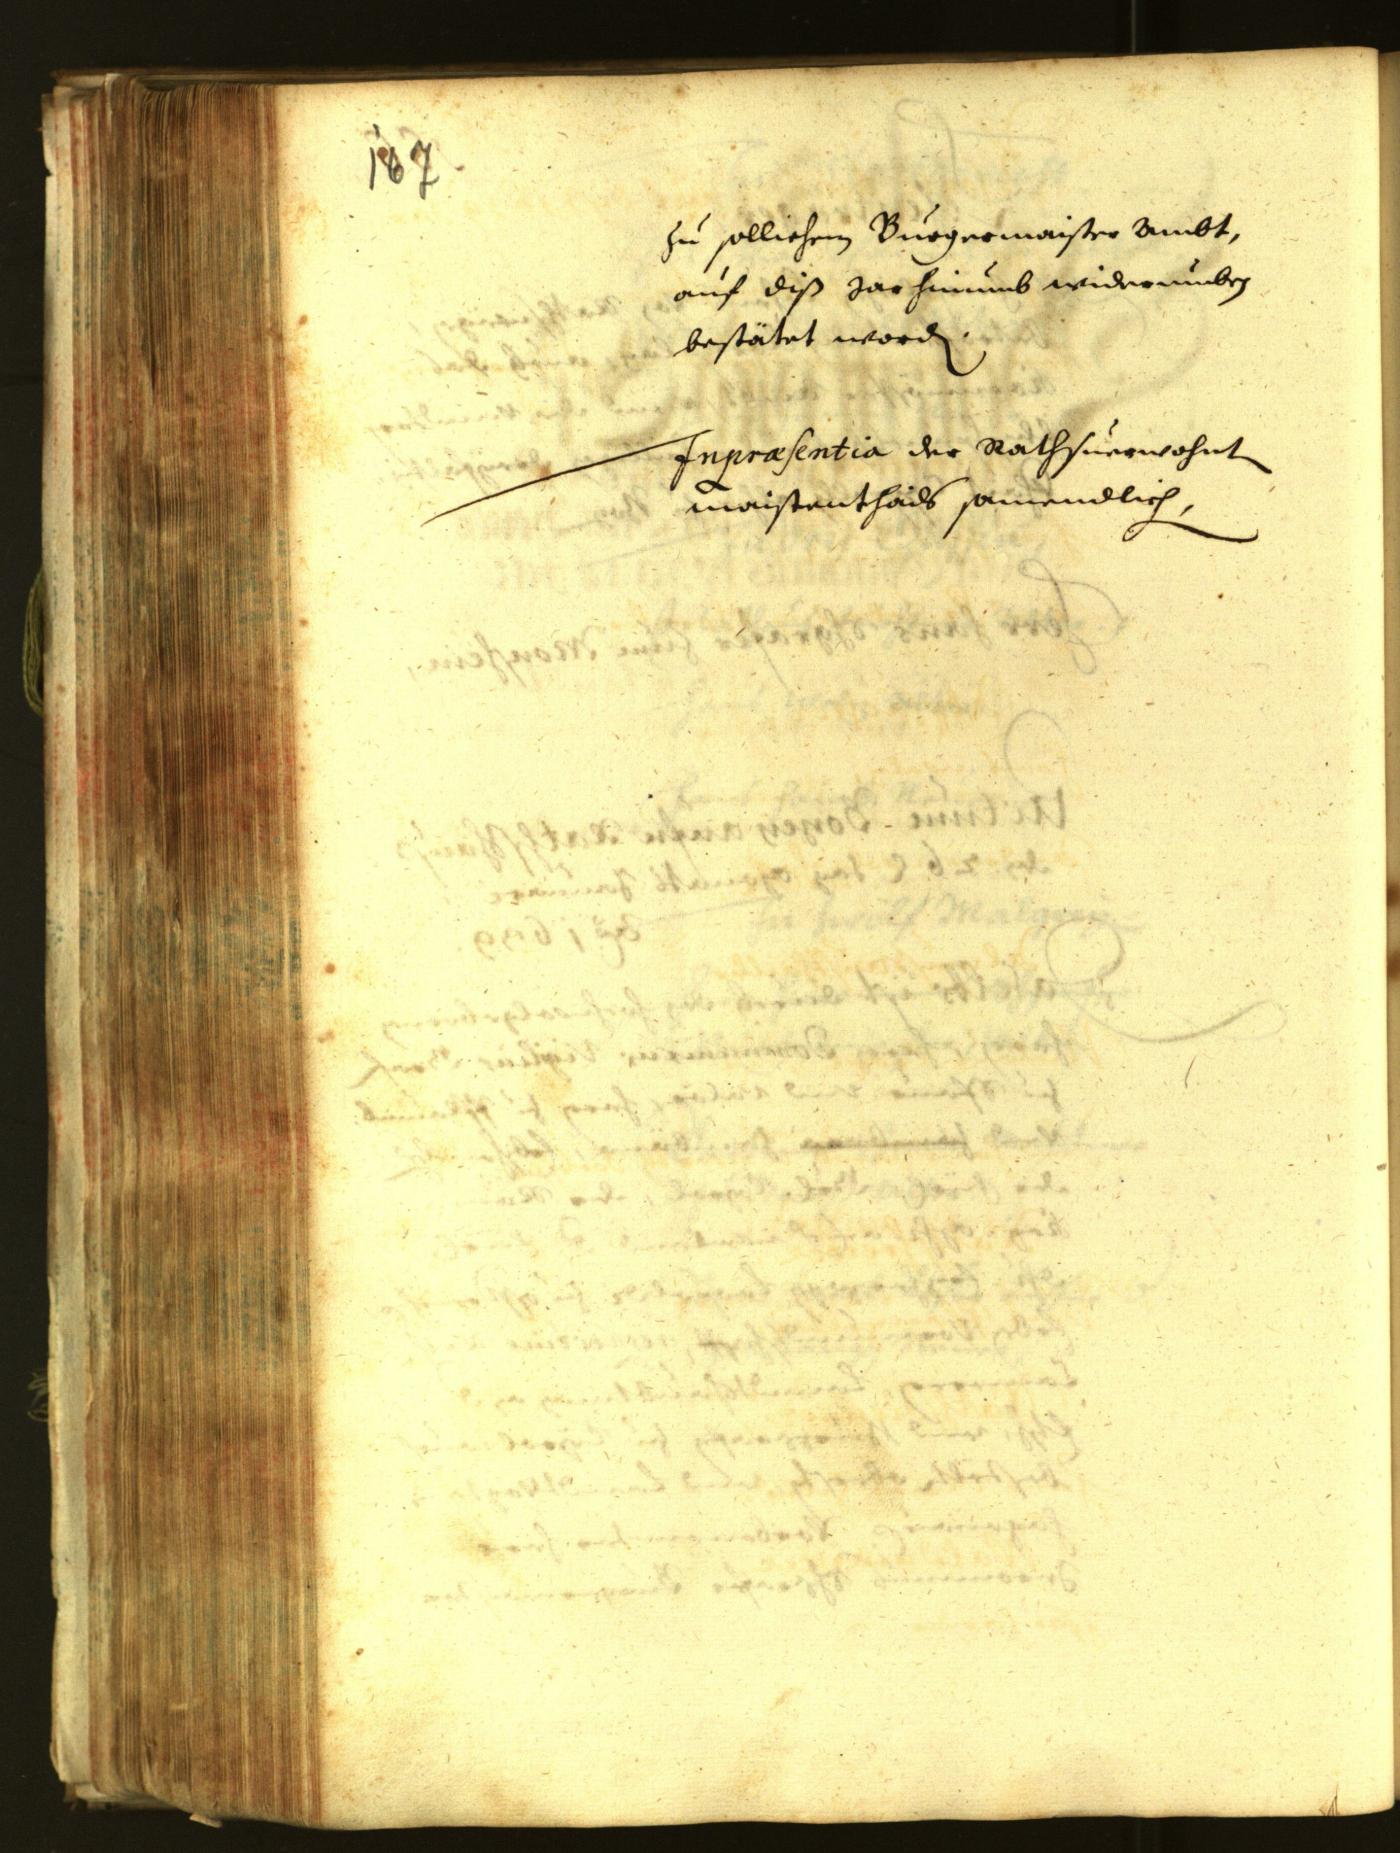 187
zu sollichem Burgermaister Ambt,
auf diß Jar hinumb widerumben
bestätet word.
Inpræsentia der Rathsuerwohnt
maistenthails samendlich,